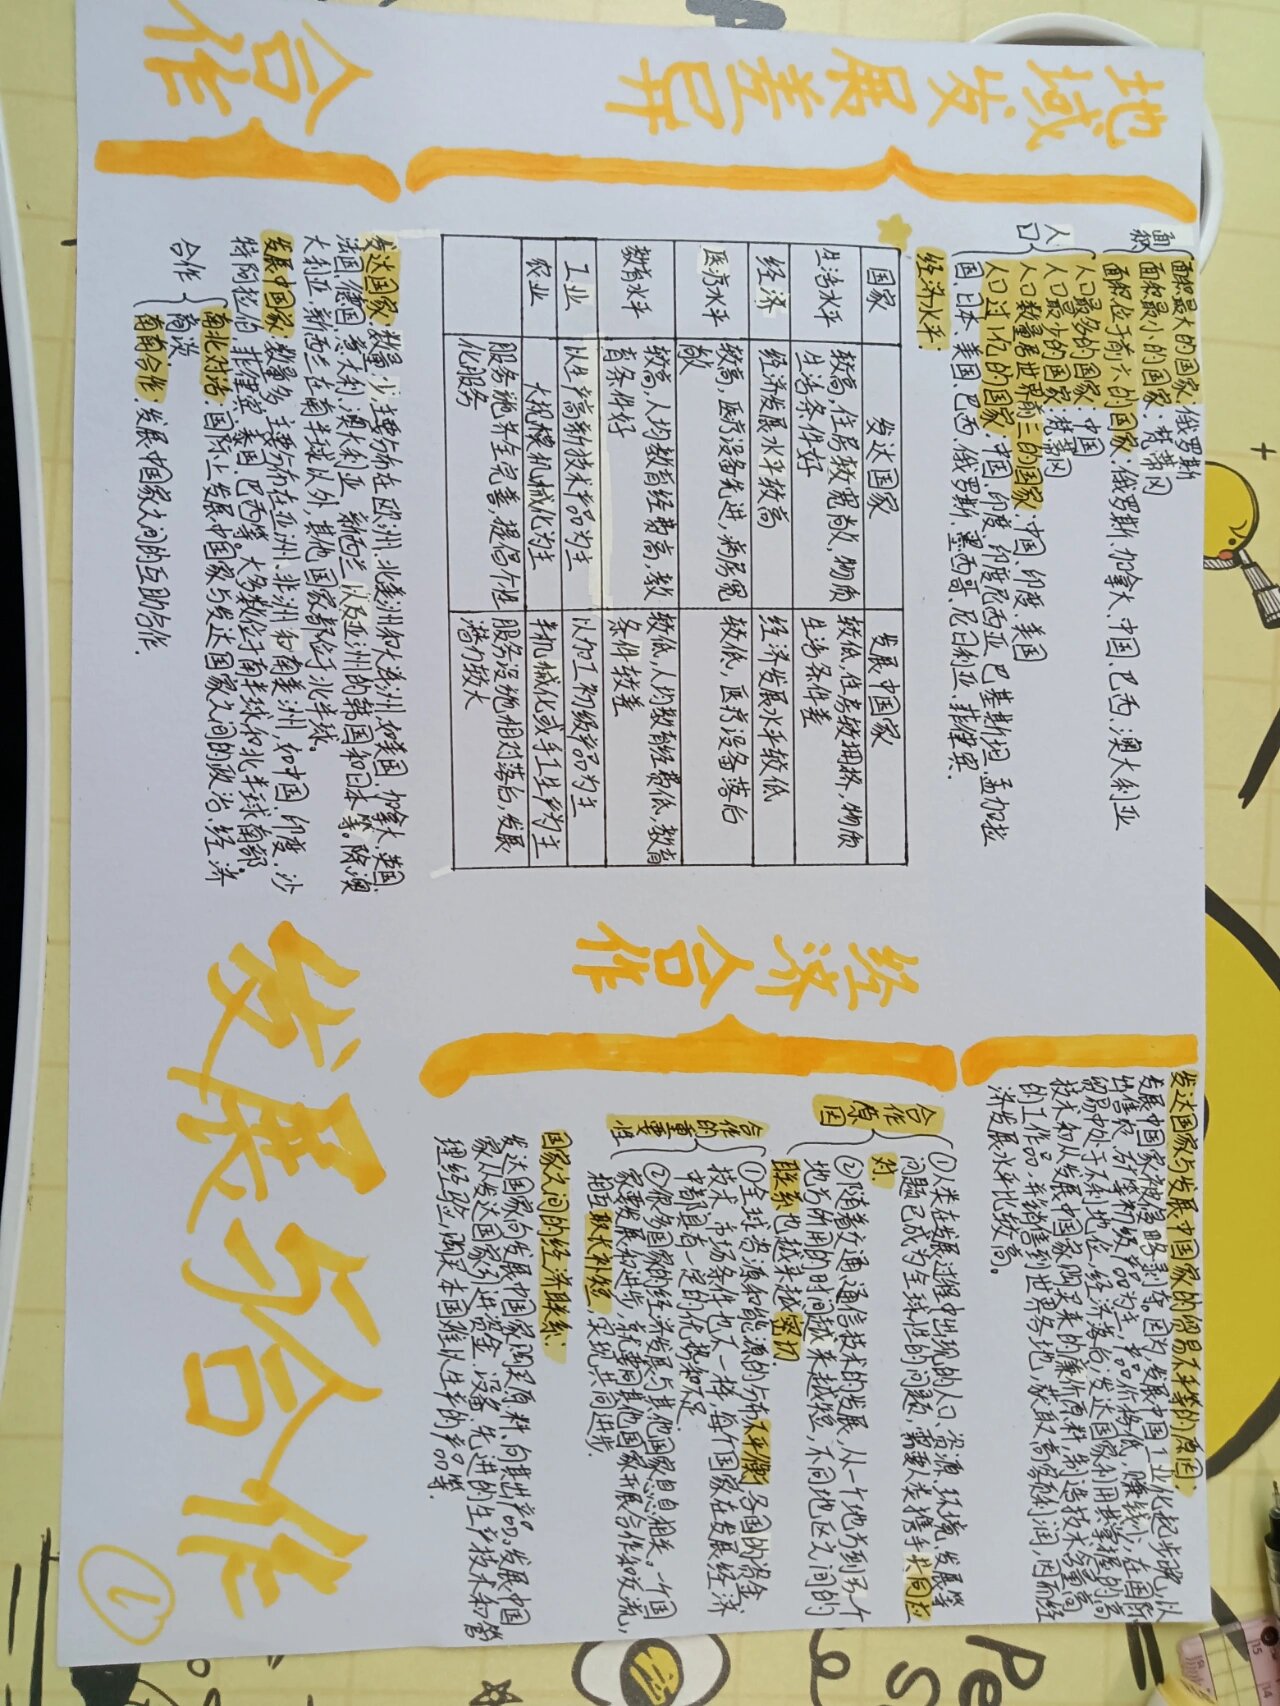 地域发展差异
面积
面积最大的国家:俄罗斯
面积最小的国家:梵蒂冈
面积位于前六的国家:俄罗斯、加拿大、中国、巴西、澳大利亚
人口
人口最多的国家:中国
人口最少的国家:梵蒂冈
人口数量居世界前三的国家:中国、印度、美国
人口过1亿的国家:中国、印度、印度尼西亚、巴基斯坦、孟加拉
国、日本、美国、巴西、俄罗斯、墨西哥、尼日利亚、菲律宾.
经济水平:
国家 发达国家 发展中国家
生活水平 较高,住房较宽敞,物质生活条件好 较低,住房较拥挤,物质生活条件差
经济 经济发展水平较高 经济发展水平较低
医疗水平 较高,医疗设备先进,病房宽敞 较低,医疗设备落后
教育水平 较高,人均教育经费高,教育条件好 较低,人均教育经费低,教育条件较差
工业 以生产高新技术产品为主 以加工初级产品为主
农业 大规模机械化为主 半机械化或手工生产为主
服务设施齐全完善,提倡个性化服务 服务设施相对落后,发展潜力较大
合作
发达国家:数量少,主要分布在欧洲、北美洲和大洋洲,如美国、加拿大、英国、
法国、德国、意大利、澳大利亚、新西兰以及亚洲的韩国和日本等。除澳
大利亚、新西兰在南半球以外,其他国家都位于北半球。
发展中国家:数量多,主要分布在亚洲、非洲和南美洲,如中国、印度、沙
特阿拉伯、菲律宾、泰国、巴西等。大多数位于南半球和北半球南部。
合作
南北对话:国际上发展中国家与发达国家之间的政治、经济
商谈
南南合作:发展中国家之间的互助合作.
发达国家与发展中国家的贸易不平等的原因:
发展中国家被侵略剥夺。因为发展中国工业化起步晚,以
出售农、矿等初级产品为主,产品价格低,赚钱少,在国际
贸易中处于不利地位,经济落后;发达国家利用其掌握的高
技术和从发展中国家购买来的廉价原料,制造技术含量高
的工作品,并销售到世界各地,获取高额利润,因而经
济发展水平比较高。
经济合作
合作原因
①人类在发展过程中出现的人口、资源、环境、发展等
问题已成为全球性的问题,需要人类携手共同应
对.
②随着交通、通信技术的发展,从一个地方到另一个
地方所用的时间越来越短,不同地区之间的
联系也越来越密切.
合作的重要性
①全球资源和能源的分布不平衡,各国的资金、
技术、市场条件也不一样,每个国家在发展经济
中都具有一定的优势和不足
②很多国家的经济发展与其他国家息息相关。一个国
家要发展和进步,就要同其他国家开展合作和交流,
相互取长补短,实现共同进步.
国家之间的经济联系:
发达国家向发展中国家购买原料,向其出产品。发展中国
家从发达国家引进资金、设备、先进的生产技术和管
理经验,购买本国难以生产的产品等.
发展与合作
1
Pe
s